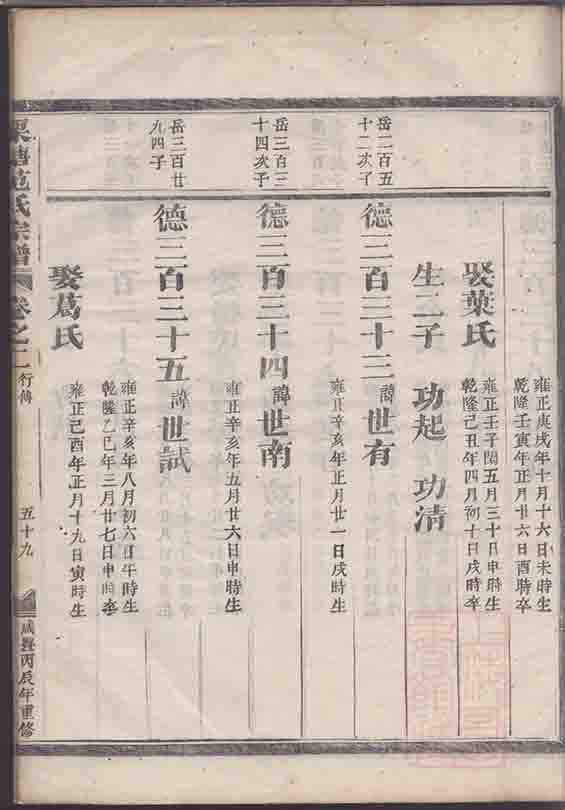 雍正庚戌年十月十六日未時生
乾隆壬寅年正月廿六日酉時卒
娶葉氏
雍正壬子閏五月三十日申時生
乾隆己丑年四月初十日戌時卒
生二子 功起 功清
岳二百五
十二次子
德三百三十三 諱世有
雍正辛亥年正月廿一日戌時生
岳三百三
十四次子
德三百三十四 諱世南
雍正辛亥年五月廿六日申時生
岳三百廿
九四子
德三百三十五 諱世試
雍正辛亥年八月初六日午時生
乾隆乙巳年三月廿七日申時卒
娶葛氏
雍正己酉年正月十九日寅時生
范氏宗譜 卷之二 行傳 五十九 咸豐丙辰年重修